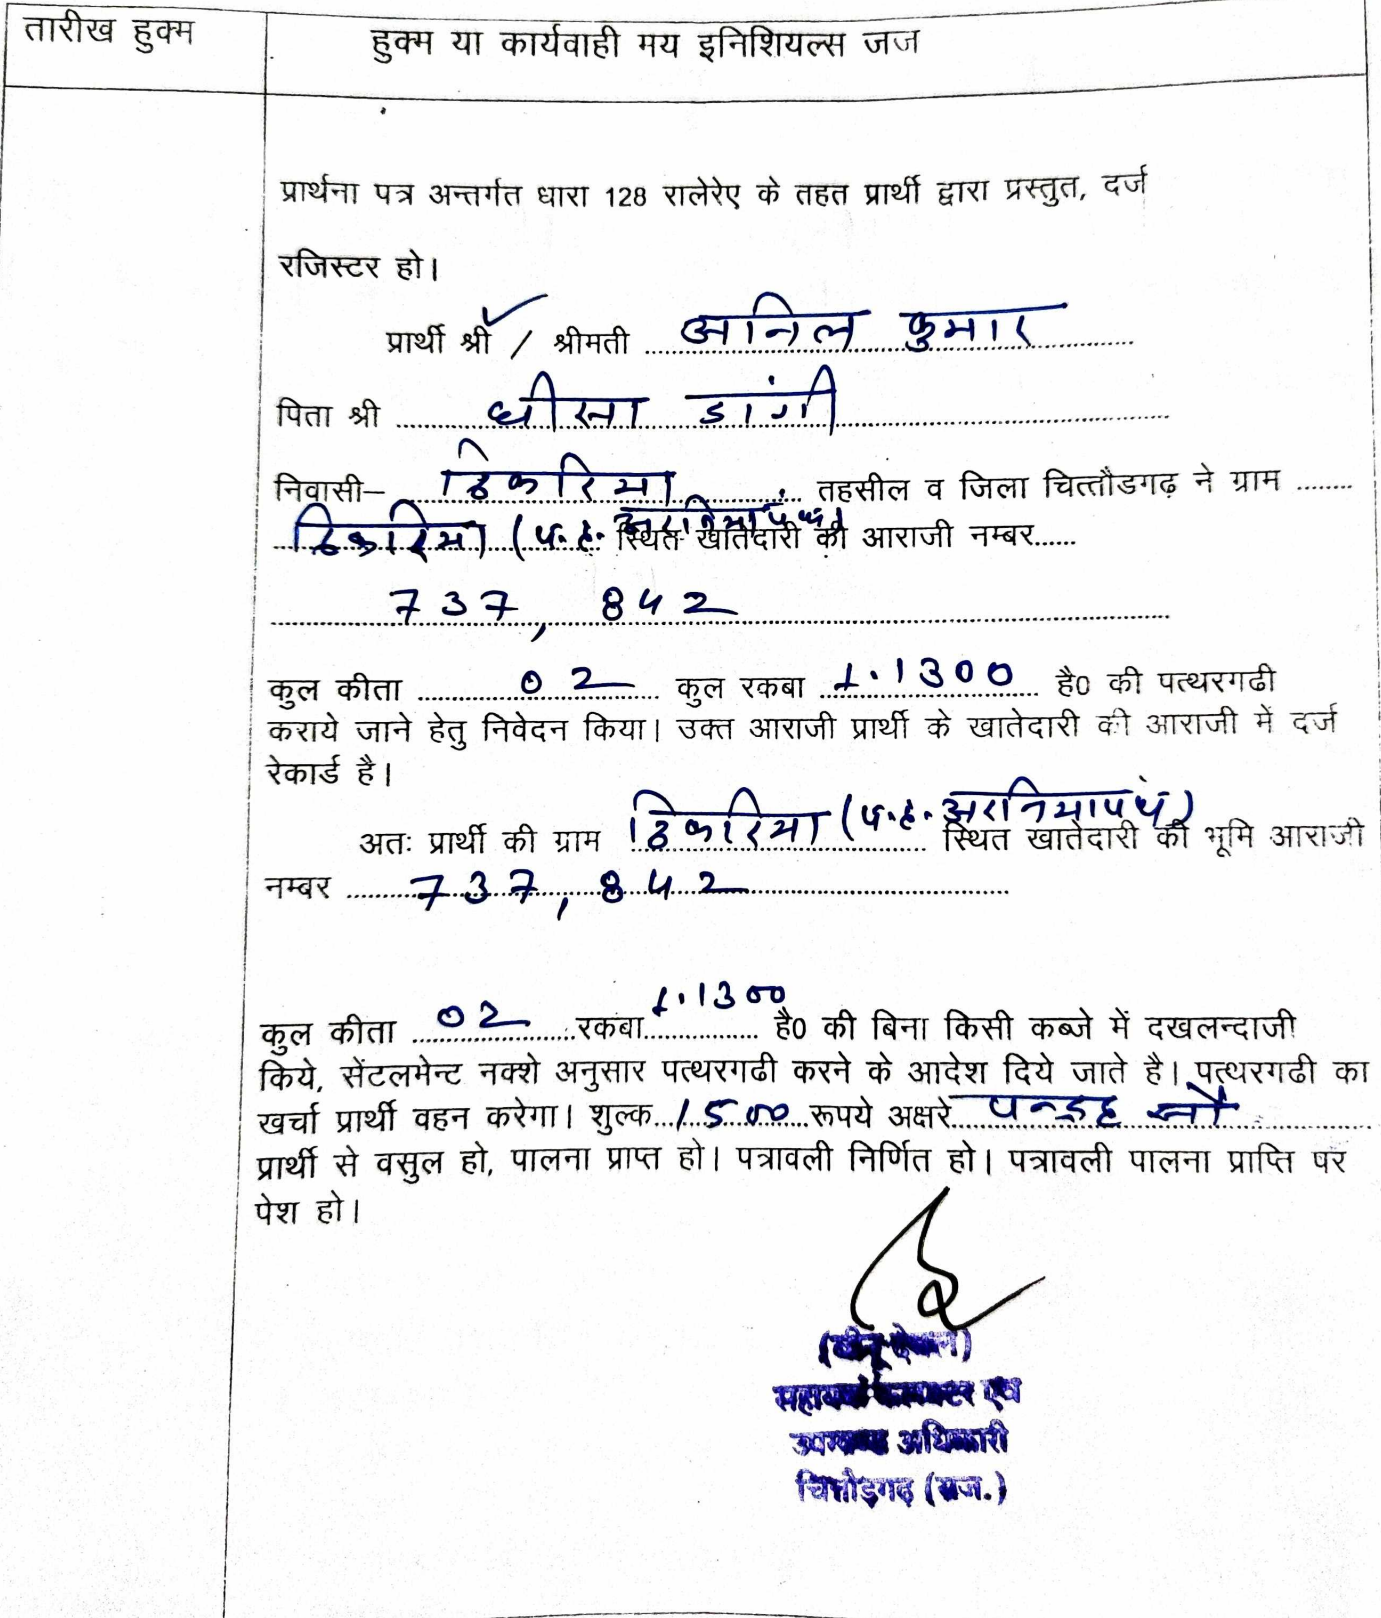 तारीख हुक्म
हुक्म या कार्यवाही मय इनिशियल्स जज
प्रार्थना पत्र अन्तर्गत धारा 128 रालेरेए के तहत प्रार्थी द्वारा प्रस्तुत, दर्ज
रजिस्टर हो।
प्रार्थी श्री / श्रीमती अनिल कुमार
पिता श्री धीसा डांगी
निवासी– ठिकरिया तहसील व जिला चित्तौडगढ़ ने ग्राम
ठिकरिया (प.ह. अरनियापंथ) स्थित खातेदारी की आराजी नम्बर
737, 842
कुल कीता 02 कुल रकबा 1.1300 है0 की पत्थरगढी
कराये जाने हेतु निवेदन किया। उक्त आराजी प्रार्थी के खातेदारी की आराजी में दर्ज
रेकार्ड है।
अतः प्रार्थी की ग्राम ठिकरिया (प.ह. अरनियापंथ) स्थित खातेदारी की भूमि आराजी
नम्बर 737, 842
कुल कीता 02 रकबा 1.1300 है0 की बिना किसी कब्जे में दखलन्दाजी
किये, सेंटलमेन्ट नक्शे अनुसार पत्थरगढी करने के आदेश दिये जाते है। पत्थरगढी का
खर्चा प्रार्थी वहन करेगा। शुल्क 1500 रूपये अक्षरे पन्द्रह सौ
प्रार्थी से वसुल हो, पालना प्राप्त हो। पत्रावली निर्णित हो। पत्रावली पालना प्राप्ति पर
पेश हो।
सहायक कलक्टर एवं
उपखण्ड अधिकारी
चित्तौड़गढ़ (राज.)